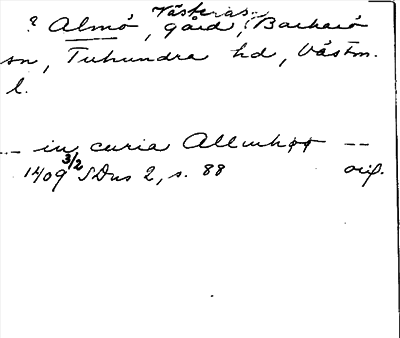 Västerås-
? Almö, gård, (Barkarö
sn, Tuhundra hd, Västm.
l.
-- in curia Allmhøø --
1409 3/2 SDns 2, s. 88 orig.